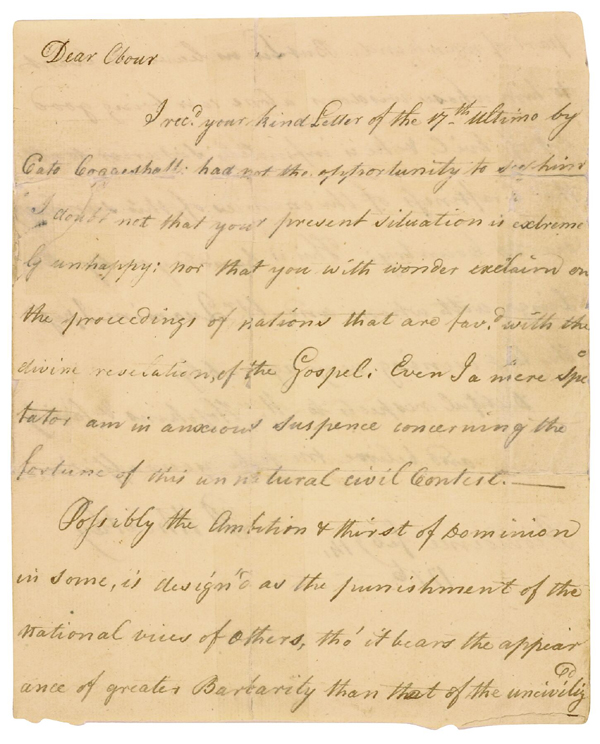 Dear Obour
I rec.d your kind Letter of the 17th Ultimo by
Cato Coggeshall: had not the opportunity to see him
I doubt not that your present situation is extreme
ly unhappy; nor that you with wonder exclaim on
the proceedings of nations that are fav.d with the
divine revelation of the Gospel. Even I a mere spec
tator am in anxious suspence concerning the
fortune of this unnatural civil Contest.—
Possibly the Ambition & thirst of Dominion
in some, is design'd as the punishment of the
national vices of others, tho' it bears the appear
ance of greater Barbarity than that of the unciviliz
ed